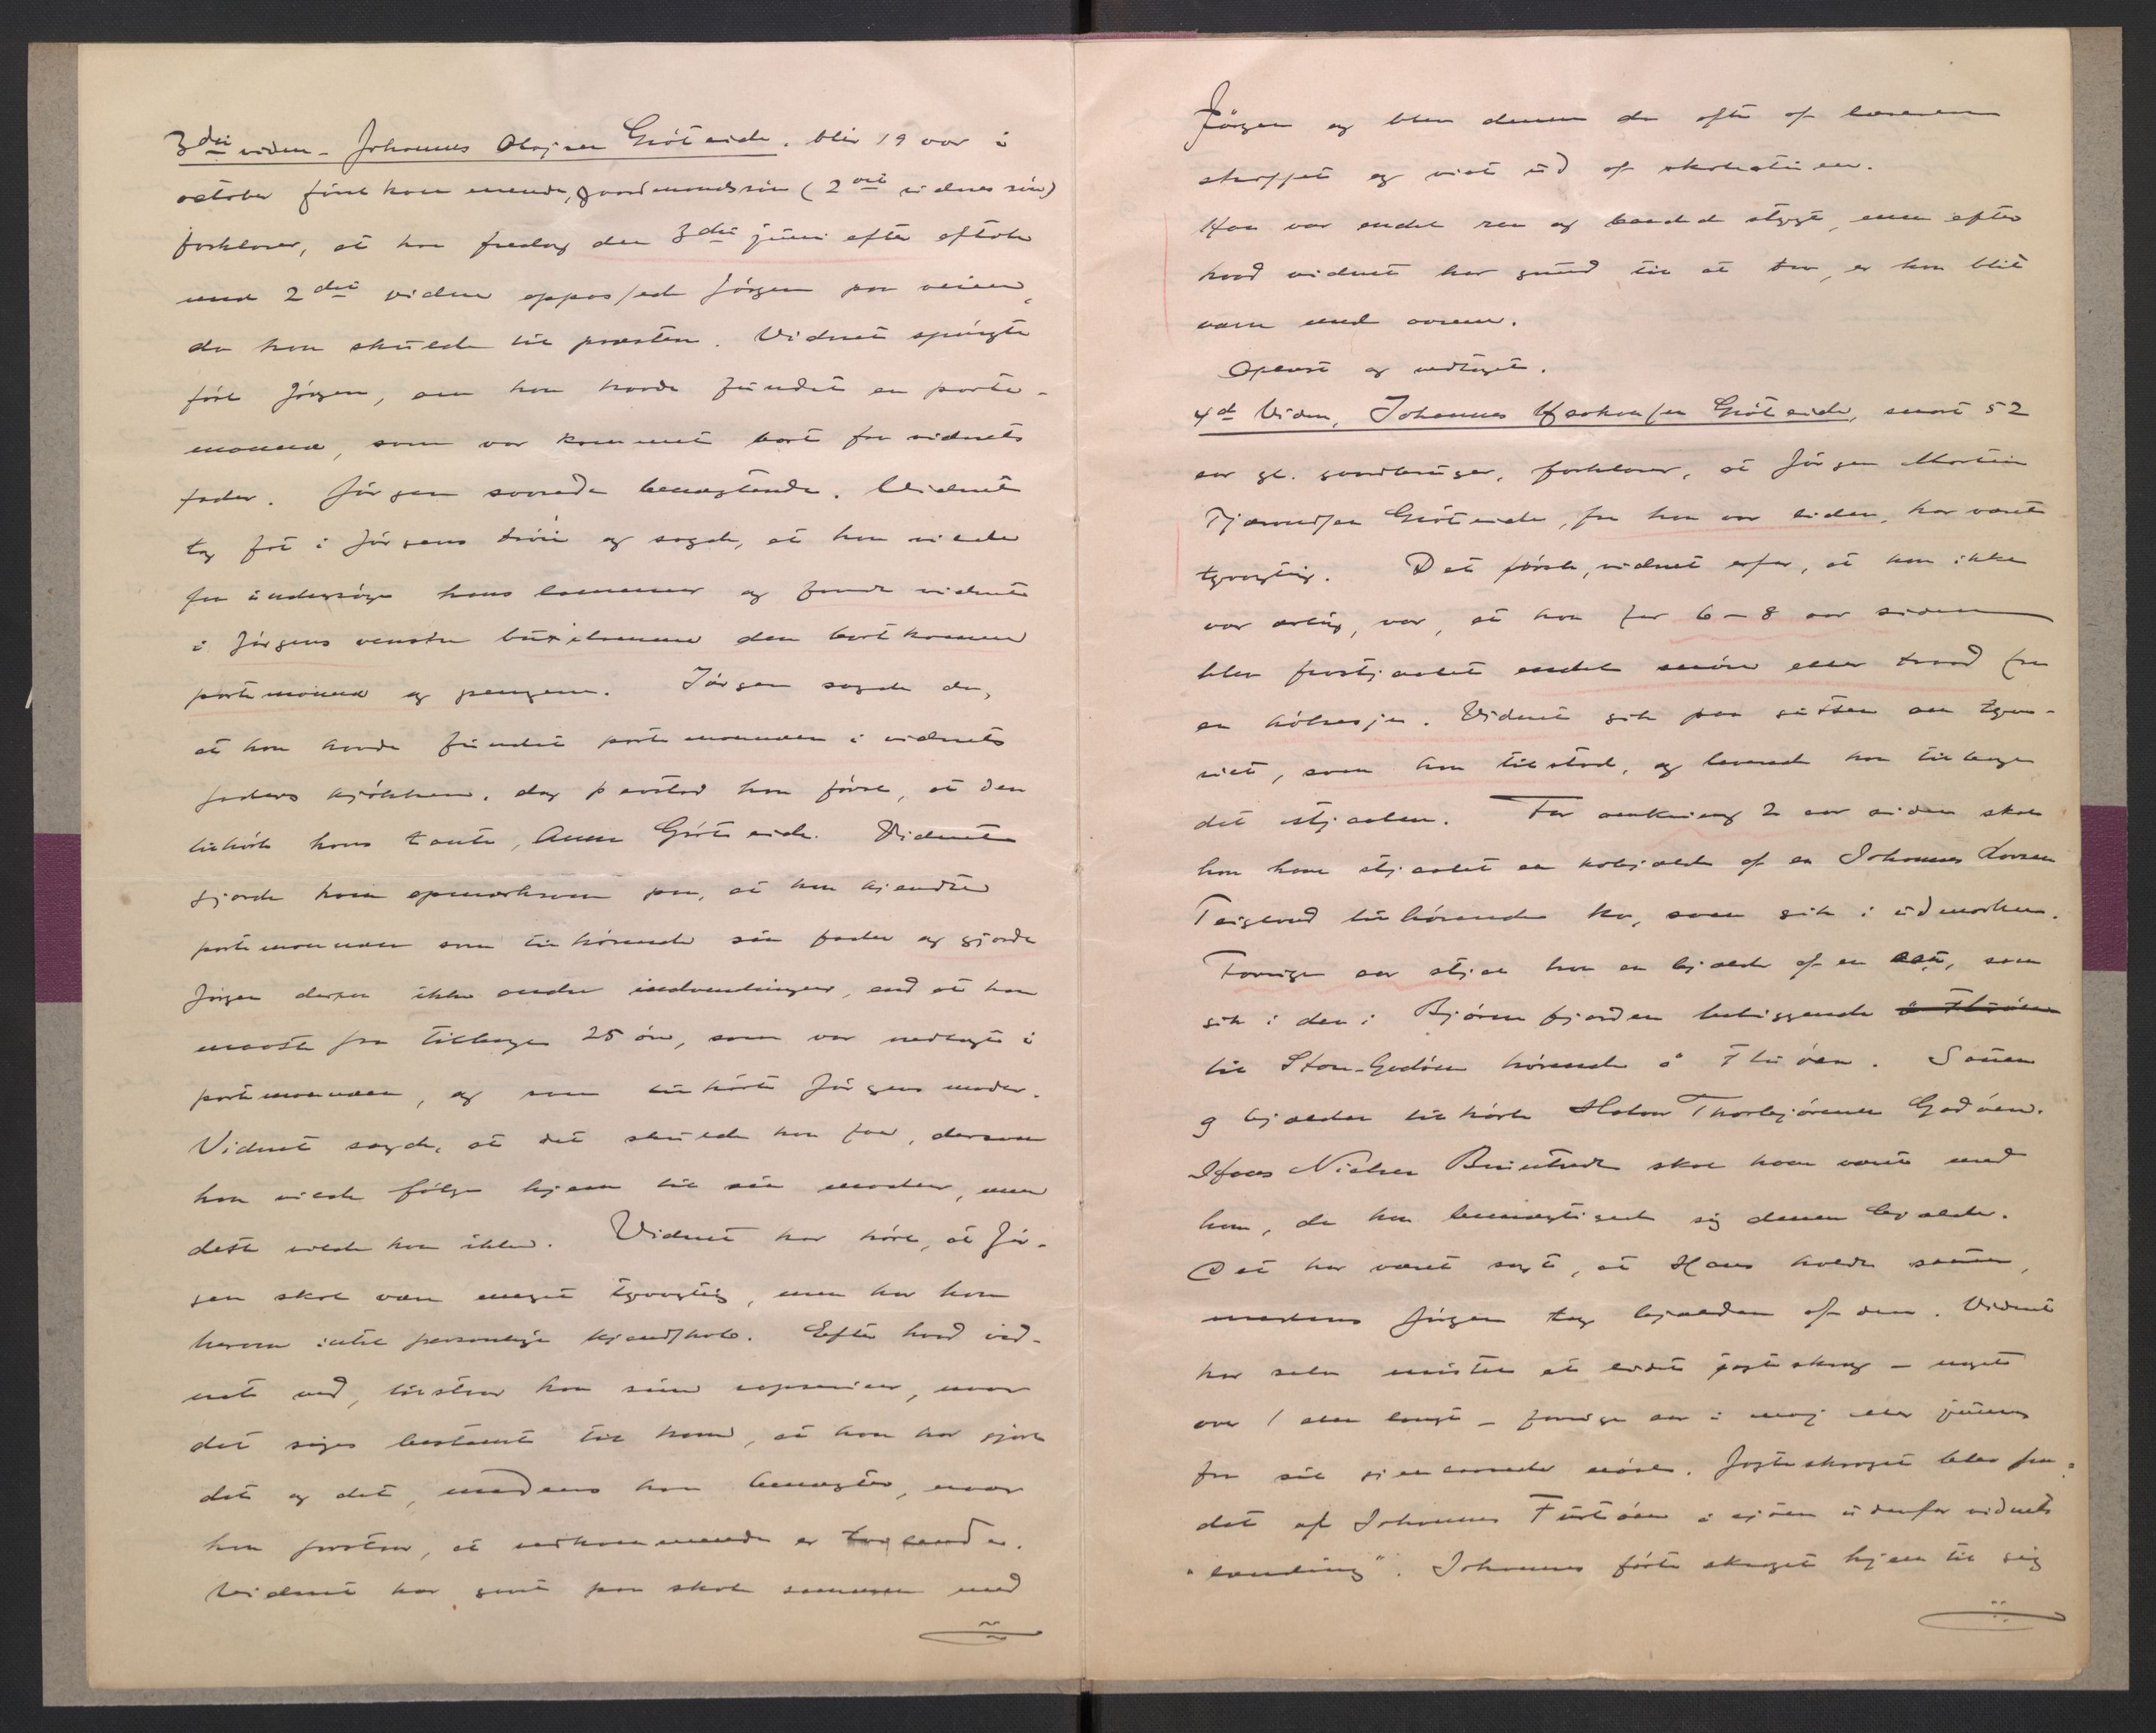 3die vidne – Johannes Olajsen Gröteide, blir 19 aar i
october förstkommende, gaardmandssön (2det vidnes sön)
forklarer, at han fredag den 3die juni efter aftale
med 2det vidne oppassed Jörgen paa veien,
da han skulde til præsten. Vidnet spurgte
först Jörgen, om han havde fundet en porte-
monnæ, som var kommet bort fra vidnets
fader. Jörgen svarede benægtende. Vidnet
tog fat i Jörgens tröie og sagde, at han vilde
faa undersöge hans lommer og fandt vidnet
i Jörgens venstre buxelomme den bortkomne
portemonnæ og pengene. Jörgen sagde da,
at han havde fundet portemonnæen i vidnets
faders kjökken, dog paastod han först, at den
tilhörte hans tante, Anna Gröteide. Vidnet
gjorde ham opmærksom paa, at han kjendte
portemonnæen som tilhörende sin fader og gjorde
Jörgen derpaa ikke andre indvendinger, end at han
maatte faa tilbage 25 öre, som var nedlagt i
portemonnæen, og som tilhörte Jörgens moder.
Vidnet sagde, at det skulde han faa, dersom
han vilde fölge hjem til sin moder, men
dette vilde han ikke. Vidnet har hört, at Jör-
gen skal være meget tyvagtig, men har han
herom intet personlige kjendskab. Efter hvad vid-
net ved, tilstaar han sine rapserier, naar
det siges bestemt til ham, at han har gjort
det og det, medens han benægter, naar
han forstaar, at vedkommende er tvilende.
Vidnet har gaat paa skole sammen med
Jörgen og blev denne da ofte af læreren
straffet og vist ud af skolestuen.
Han var endel ren og bandede stygt, men efter
hvad vidnet har grund til at tro, er han blit
værre med aarene.
Oplæst og vedtaget.
4de Vidne, Johannes Haakonsen Gröteide, snart 52
aar gl. gaardbruger, forklarer, at Jörgen Martin
Tjærandsen Gröteide, fra han var liden, har været
tyvagtig. Det förste, vidnet erfor, at han ikke
var ærlig, var, at han for 6–8 aar siden
blev frastjaalet endel snöre eller traad fra
en höhesje. Vidnet gik paa gutten om tyve-
riet, som han tilstod, og leverede han tilbage
det stjaalne. For omkring 2 aar siden skal
han have stjaalet en kobjælde af en Johannes Larsen
Teigland tilhörende ko, som gik i udmarken.
Forrige aar stjal han en bjælde af en sau, som
gik i den i Björnefjorden beliggende
til Store-Godöen hörende ö Fluöen. Sauen
og bjælden tilhörte Halvor Thorbjörnsen Godöen.
Hans Nielsen Bruintveit skal have været med
ham, da han bemægtigede sig denne bjælde.
Det har været sagt, at Hans holdt sauen,
medens Jörgen tog bjælden af den. Vidnet
har selv mistet et lidet jagtskrog – noget
over 1 alen langt – forrige aar i maj eller juni
fra sit nöst. Jagtskroget blev fun-
det af Johannes i sjöen udenfor vidnets
"landing". Johannes förte skroget hjem til sig